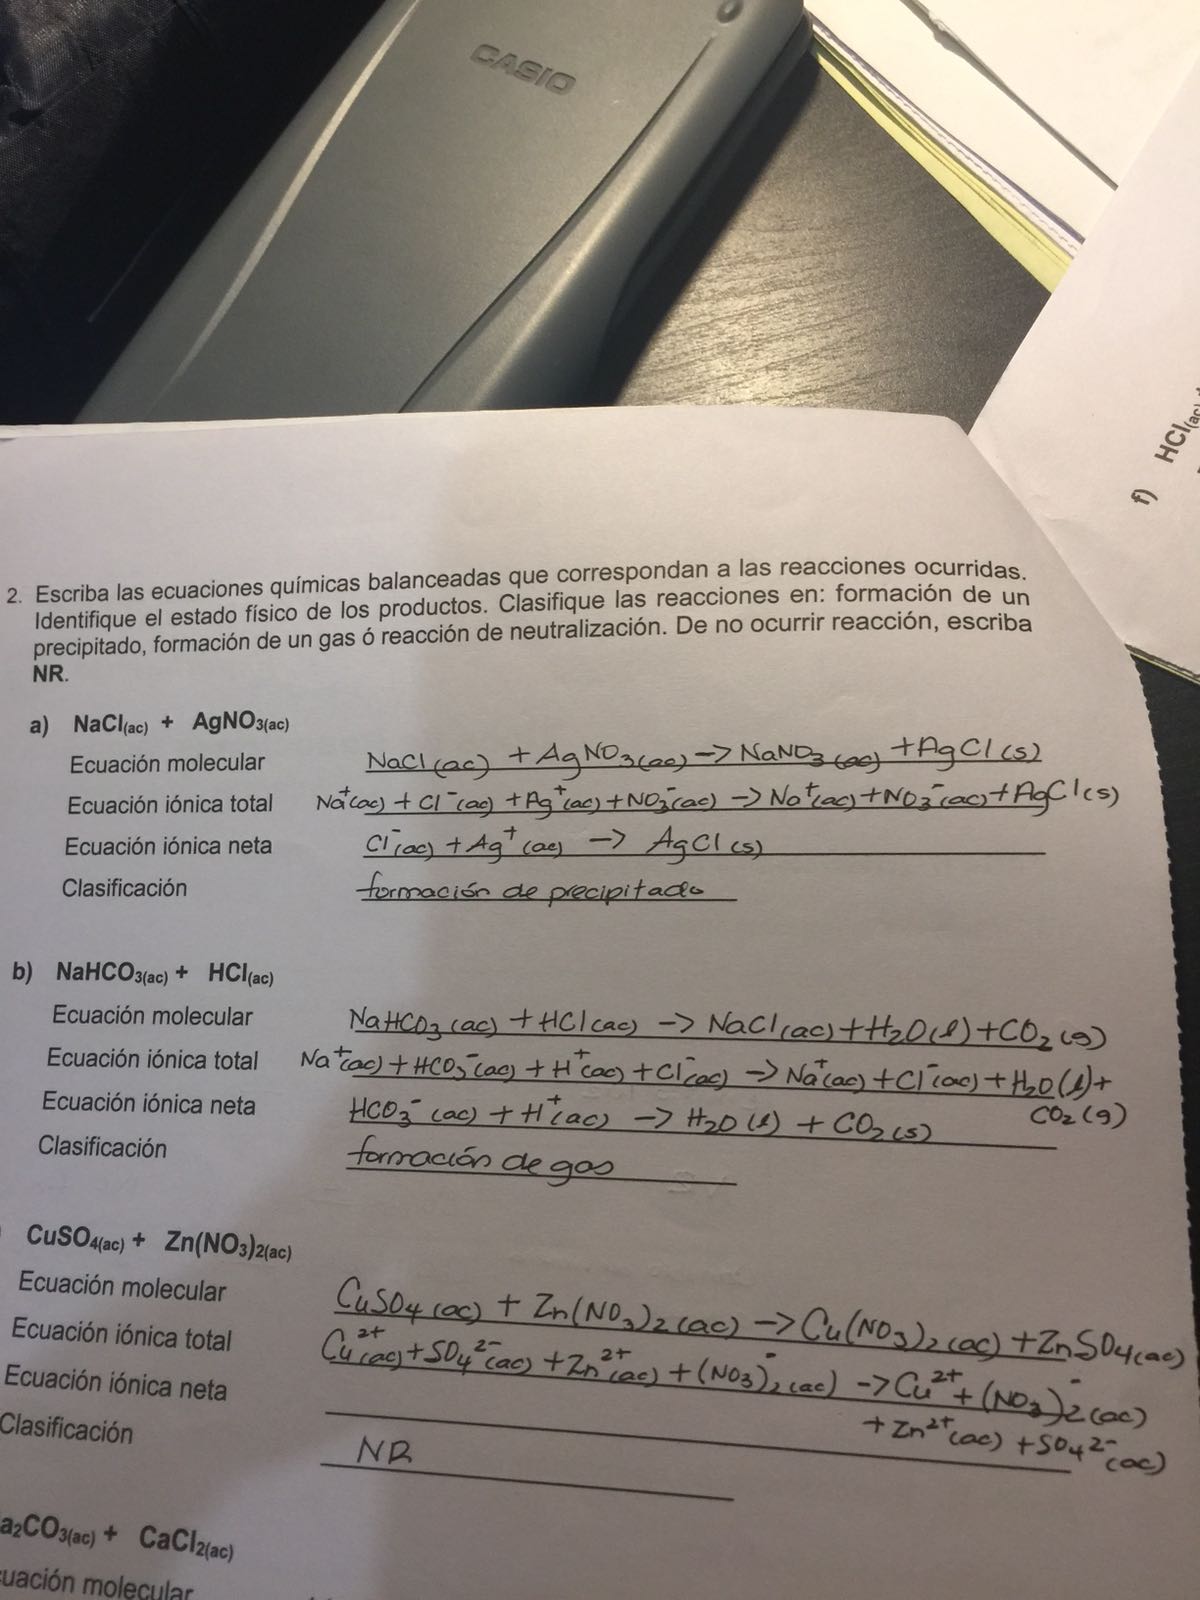 CASIO
f) HCl(ac)
2. Escriba las ecuaciones químicas balanceadas que correspondan a las reacciones ocurridas.
Identifique el estado físico de los productos. Clasifique las reacciones en: formación de un
precipitado, formación de un gas ó reacción de neutralización. De no ocurrir reacción, escriba
NR.
a) NaCl(ac) + AgNO3(ac)
Ecuación molecular NaCl(ac) + AgNO3(ac) -> NaNO3(ac) + AgCl(s)
Ecuación iónica total Na+(ac) + Cl-(ac) + Ag+(ac) + NO3-(ac) -> Na+(ac) + NO3-(ac) + AgCl(s)
Ecuación iónica neta Cl-(ac) + Ag+(ac) -> AgCl(s)
Clasificación formación de precipitado
b) NaHCO3(ac) + HCl(ac)
Ecuación molecular NaHCO3(ac) + HCl(ac) -> NaCl(ac) + H2O(l) + CO2(g)
Ecuación iónica total Na+(ac) + HCO3-(ac) + H+(ac) + Cl-(ac) -> Na+(ac) + Cl-(ac) + H2O(l) +
CO2(g)
Ecuación iónica neta HCO3-(ac) + H+(ac) -> H2O(l) + CO2(s)
Clasificación formación de gas
CuSO4(ac) + Zn(NO3)2(ac)
Ecuación molecular CuSO4(ac) + Zn(NO3)2(ac) -> Cu(NO3)2(ac) + ZnSO4(ac)
Ecuación iónica total Cu2+(ac) + SO4 2-(ac) + Zn2+(ac) + (NO3)2-(ac) -> Cu2+ + (NO3)2-(ac)
+ Zn2+(ac) + SO4 2-(ac)
Ecuación iónica neta
Clasificación NR
a2CO3(ac) + CaCl2(ac)
cuación molecular